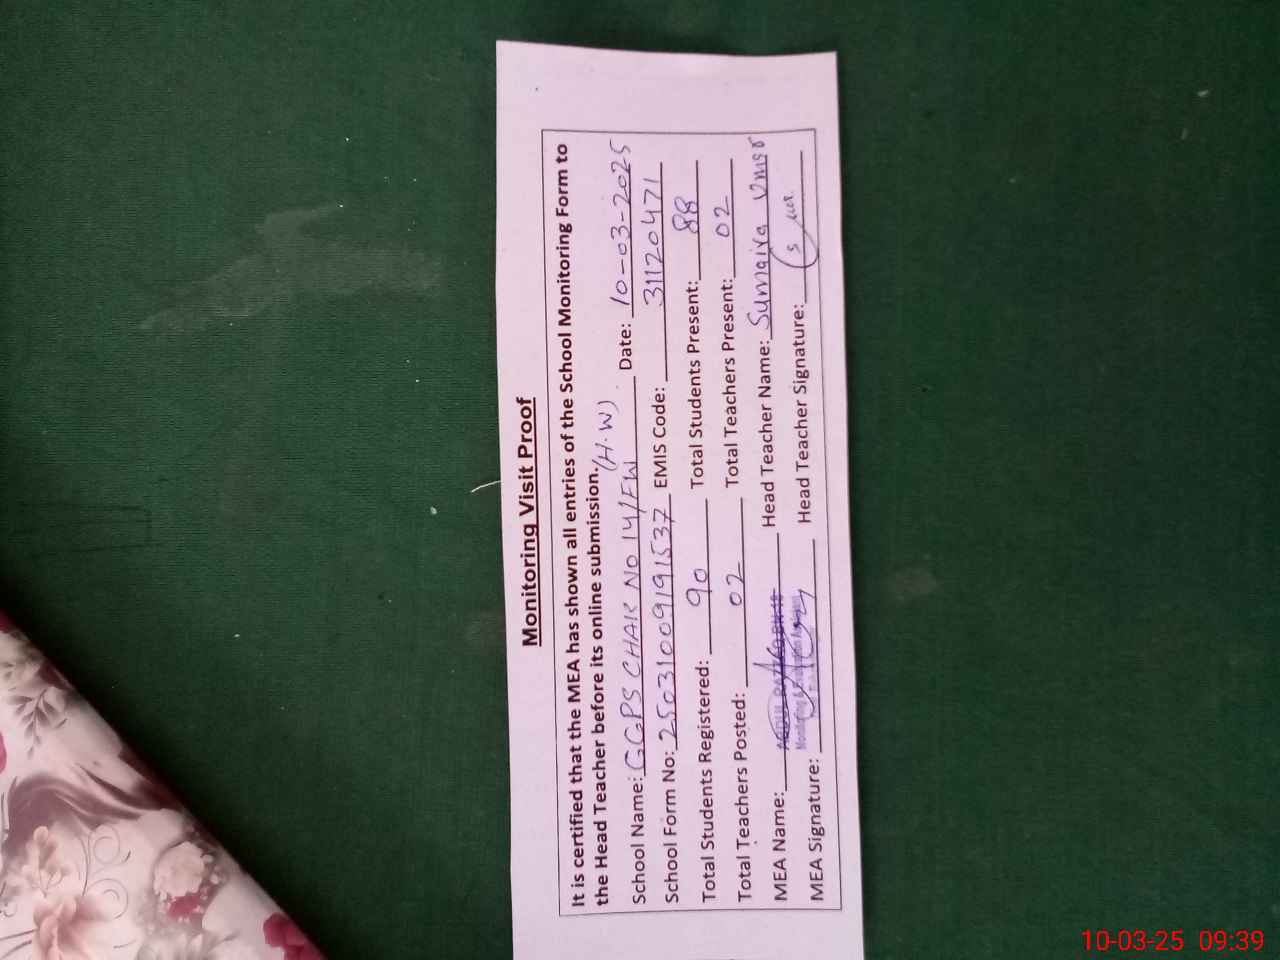 Monitoring Visit Proof
It is certified that the MEA has shown all entries of the School Monitoring Form to
the Head Teacher before its online submission. (H.W)
School Name: GGPS CHAK NO 14/FW Date: 10-03-2025
School Form No: 25031009191537 EMIS Code: 31120471
Total Students Registered: 90 Total Students Present: 88
Total Teachers Posted: 02 Total Teachers Present: 02
MEA Name: Head Teacher Name: Sumaiya Umer
Monitoring & Evaluation
MEA Signature: Head Teacher Signature:
10-03-25 09:39